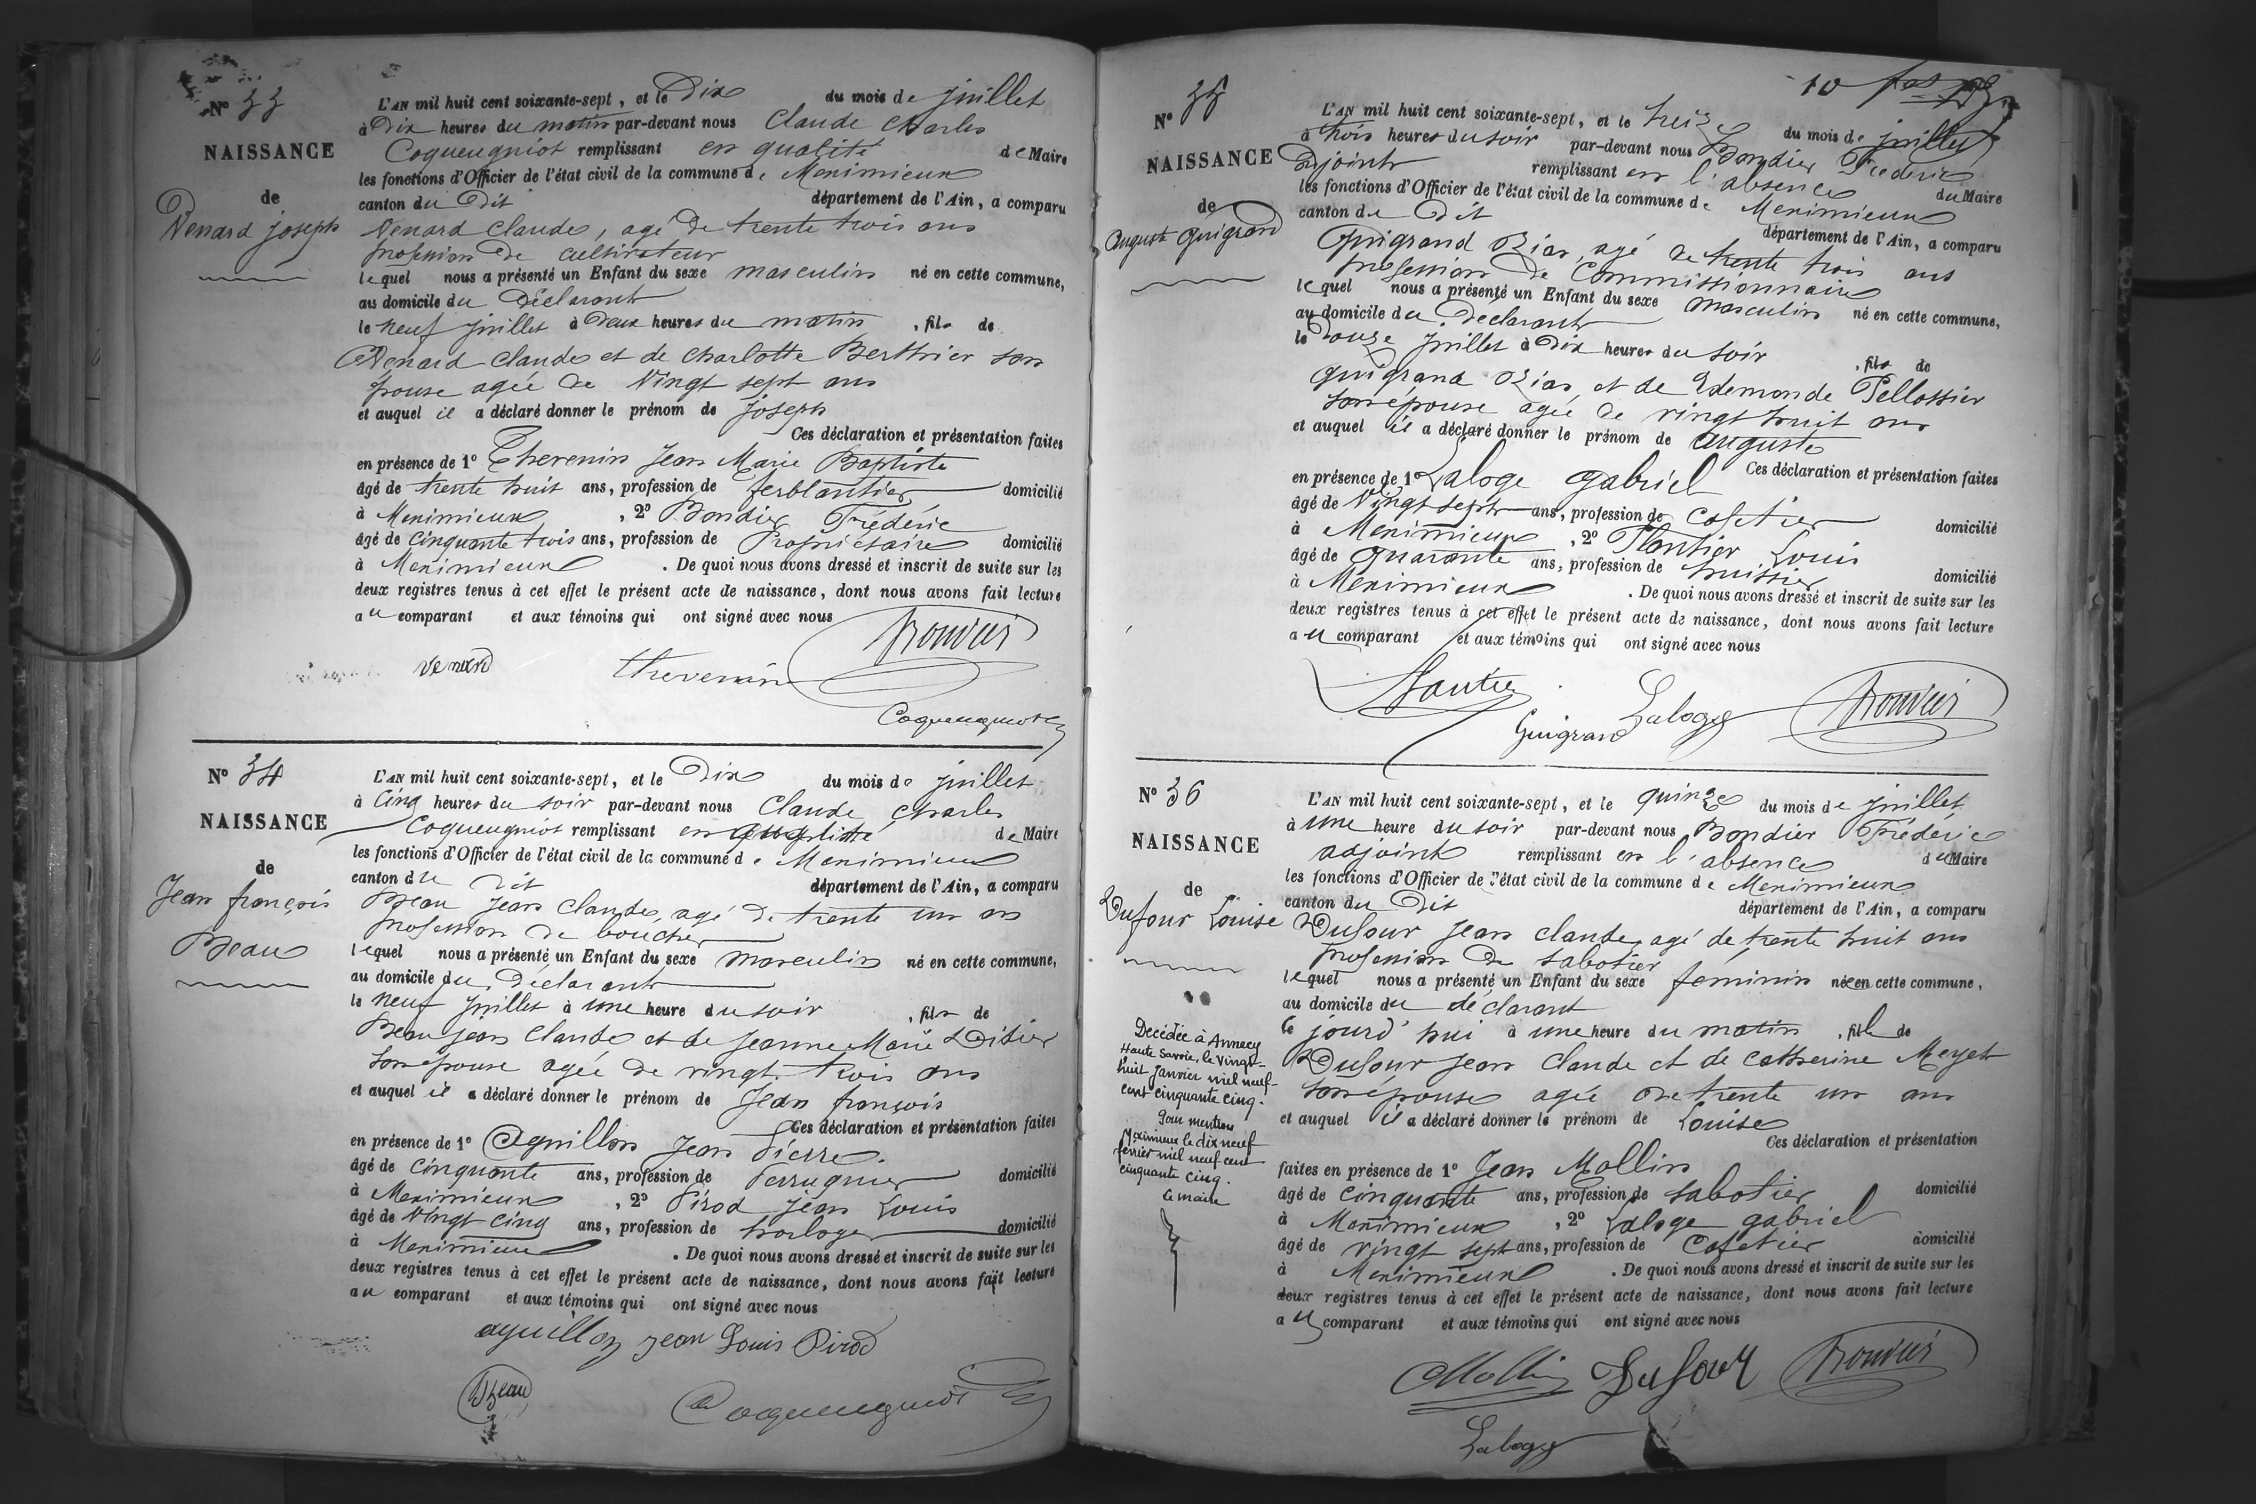 N° 33
NAISSANCE
de
Venard joseph
L'AN mil huit cent soixante-sept, et le Dix du mois de juillet
à Dix heures du matin par-devant nous Claude Charles
Coqueugniot remplissant en qualité de Maire
les fonctions d'Officier de l'état civil de la commune de Meximieux
canton du Dit département de l'Ain, a comparu
Venard Claude, agé de trente trois ans
profession de cultivateur
lequel nous a présenté un Enfant du sexe masculin né en cette commune,
au domicile du Déclarant
le neuf juillet à Deux heures du matin, fils de
Venard Claude et de Charlotte Berthier son
épouse agée de vingt sept ans
et auquel il a déclaré donner le prénom de joseph
Ces déclaration et présentation faites
en présence de 1° Thevenin Jean Marie Baptiste
âgé de trente huit ans, profession de ferblantier domicilié
à Meximieux, 2° Bondier Frédéric
âgé de cinquante trois ans, profession de Propriétaire domicilié
à Meximieux. De quoi nous avons dressé et inscrit de suite sur les
deux registres tenus à cet effet le présent acte de naissance, dont nous avons fait lecture
au comparant et aux témoins qui ont signé avec nous
venard thevenin
Coqueugniot
N° 34
NAISSANCE
de
Jean françois
Beau
L'AN mil huit cent soixante-sept, et le Dix du mois de juillet
à Cinq heures du soir par-devant nous Claude Charles
Coqueugniot remplissant en qualité de Maire
les fonctions d'Officier de l'état civil de la commune de Meximieux
canton du Dit département de l'Ain, a comparu
Beau Jean Claude, agé de trente un ans
profession de boucher
lequel nous a présenté un Enfant du sexe masculin né en cette commune,
au domicile du Déclarant
le neuf juillet à une heure du soir, fils de
Beau jean Claude et de Jeanne Marie Didier
son épouse agée de vingt trois ans
et auquel il a déclaré donner le prénom de Jean françois
Ces déclaration et présentation faites
en présence de 1° Aguillon Jean Pierre
âgé de cinquante ans, profession de Perruquier domicilié
à Meximieux, 2° Pirod Jean Louis
âgé de vingt cinq ans, profession de horloger domicilié
à Meximieux. De quoi nous avons dressé et inscrit de suite sur les
deux registres tenus à cet effet le présent acte de naissance, dont nous avons fait lecture
au comparant et aux témoins qui ont signé avec nous
aguillon jean Louis Pirod
Beau Coqueugniot
10
N° 35
NAISSANCE
de
Auguste Guigrand
L'AN mil huit cent soixante-sept, et le treize du mois de juillet
à trois heures du soir par-devant nous Bondier Frederic
adjoint remplissant en l'absence du Maire
les fonctions d'Officier de l'état civil de la commune de Meximieux
canton du Dit département de l'Ain, a comparu
Guigrand agé de trente trois ans
profession de Commissionnaire
lequel nous a présenté un Enfant du sexe masculin né en cette commune,
au domicile du Déclarant
le Douze juillet à Dix heures du soir, fils de
Guigrand et de Edemonde Pellossier
son épouse agée de vingt huit ans
et auquel il a déclaré donner le prénom de auguste
Ces déclaration et présentation faites
en présence de 1° Laloge Gabriel
âgé de vingt sept ans, profession de Cafetier domicilié
à Meximieux, 2° Plantier Louis
âgé de quarante ans, profession de huissier domicilié
à Meximieux. De quoi nous avons dressé et inscrit de suite sur les
deux registres tenus à cet effet le présent acte de naissance, dont nous avons fait lecture
au comparant et aux témoins qui ont signé avec nous
Guigrand Laloge
N° 36
NAISSANCE
de
Dufour Louise
Decédée à Annecy
Haute Savoie, le vingt-
huit Janvier mil neuf-
cent cinquante cinq.
Pour mention
Meximieux le dix neuf
février mil neuf cent
cinquante cinq.
Le maire
L'AN mil huit cent soixante-sept, et le quinze du mois de juillet
à une heure du soir par-devant nous Bondier Frédéric
adjoint remplissant en l'absence du Maire
les fonctions d'Officier de l'état civil de la commune de Meximieux
canton du Dit département de l'Ain, a comparu
Dufour Jean Claude, agé de trente huit ans
profession de sabotier
lequel nous a présenté un Enfant du sexe féminin née en cette commune,
au domicile du déclarant
ce jourd'hui à une heure du matin, fille de
Dufour Jean Claude et de Catherine Meyet
son épouse agée de trente un ans
et auquel il a déclaré donner le prénom de Louise
Ces déclaration et présentation
faites en présence de 1° Jean Mollin
âgé de cinquante ans, profession de sabotier domicilié
à Meximieux, 2° Laloge gabriel
âgé de vingt sept ans, profession de Cafetier domicilié
à Meximieux. De quoi nous avons dressé et inscrit de suite sur les
deux registres tenus à cet effet le présent acte de naissance, dont nous avons fait lecture
au comparant et aux témoins qui ont signé avec nous
Mollin Dufour
Laloge